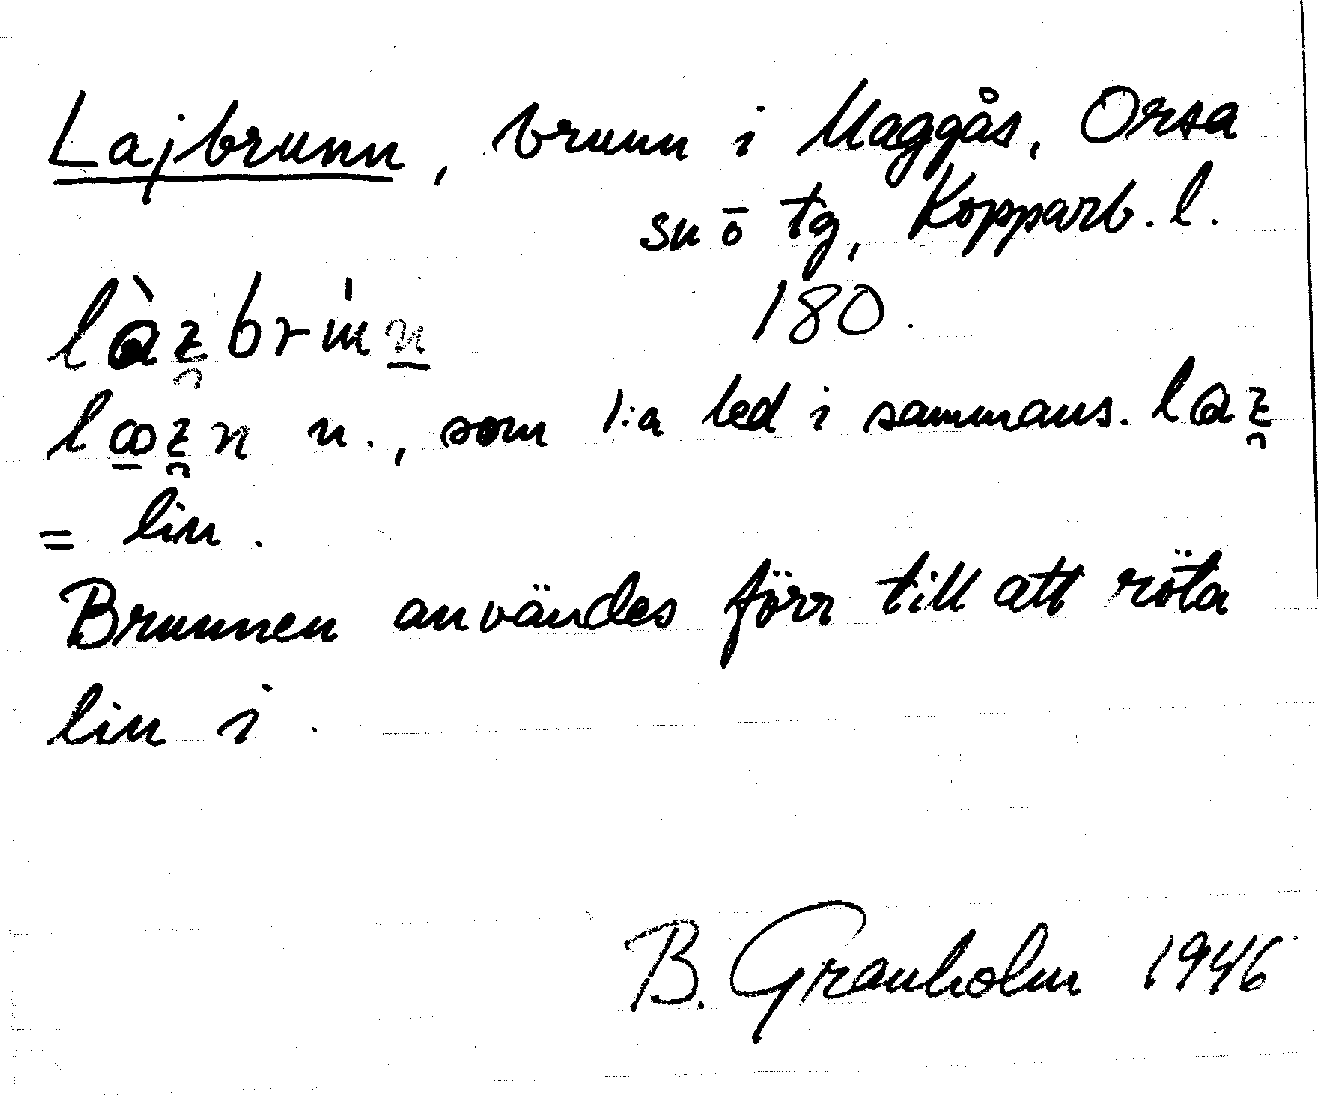 Lajbrunn, brunn i Maggås, Orsa
sn ō tg, Kopparb. l.
180.
n., som 1:a led i sammans.
= lin.
Brunnen användes förr till att röta
lin i.
B. Granholm 1946